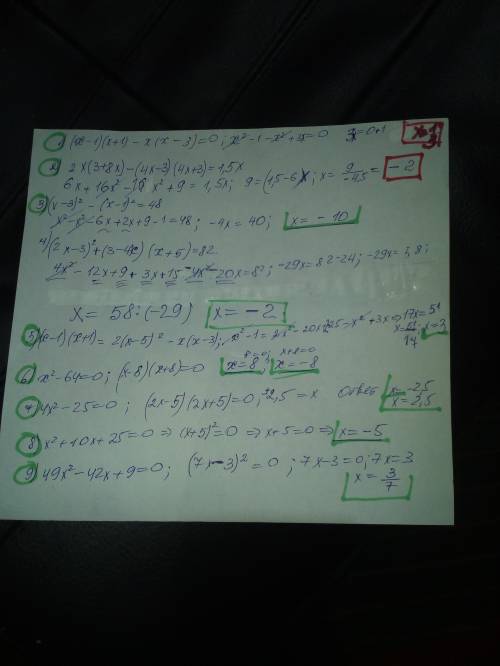 1) (x-1)(x+1) - x(x-3)=0; x²-1-x²+3x=0 3x=0+1 x=1/3
2) 2x(3+8x)-(4x-3)(4x+3)=1,5x
6x+16x²-16x²+9=1,5x; 9=(1,5-6)x; x=9/-4,5= -2
3) (x-3)²-(x-1)²=48
x²-x²-6x+2x+9-1=48; -4x=40; x=-10
4) (2x-3)²+(3-4x)(x+5)=82
4x²-12x+9+3x+15-4x²-20x=82; -29x=82-24; -29x=58;
x=58:(-29) x=-2
5) (x-1)(x+1)=2(x-5)²-x(x-3); x²-1=2x²-20x+50-x²+3x⇒17x=51 x=51/17 x=3
6) x²-64=0; (x-8)(x+8)=0 x-8=0; x+8=0 x=8; x=-8
7) 4x²-25=0; (2x-5)(2x+5)=0; ±2,5=x Ответ x=-2,5 x=2,5
8) x²+10x+25=0⇒(x+5)²=0⇒x+5=0⇒x=-5
9) 49x²-42x+9=0; (7x-3)²=0; 7x-3=0; 7x=3
x=3/7